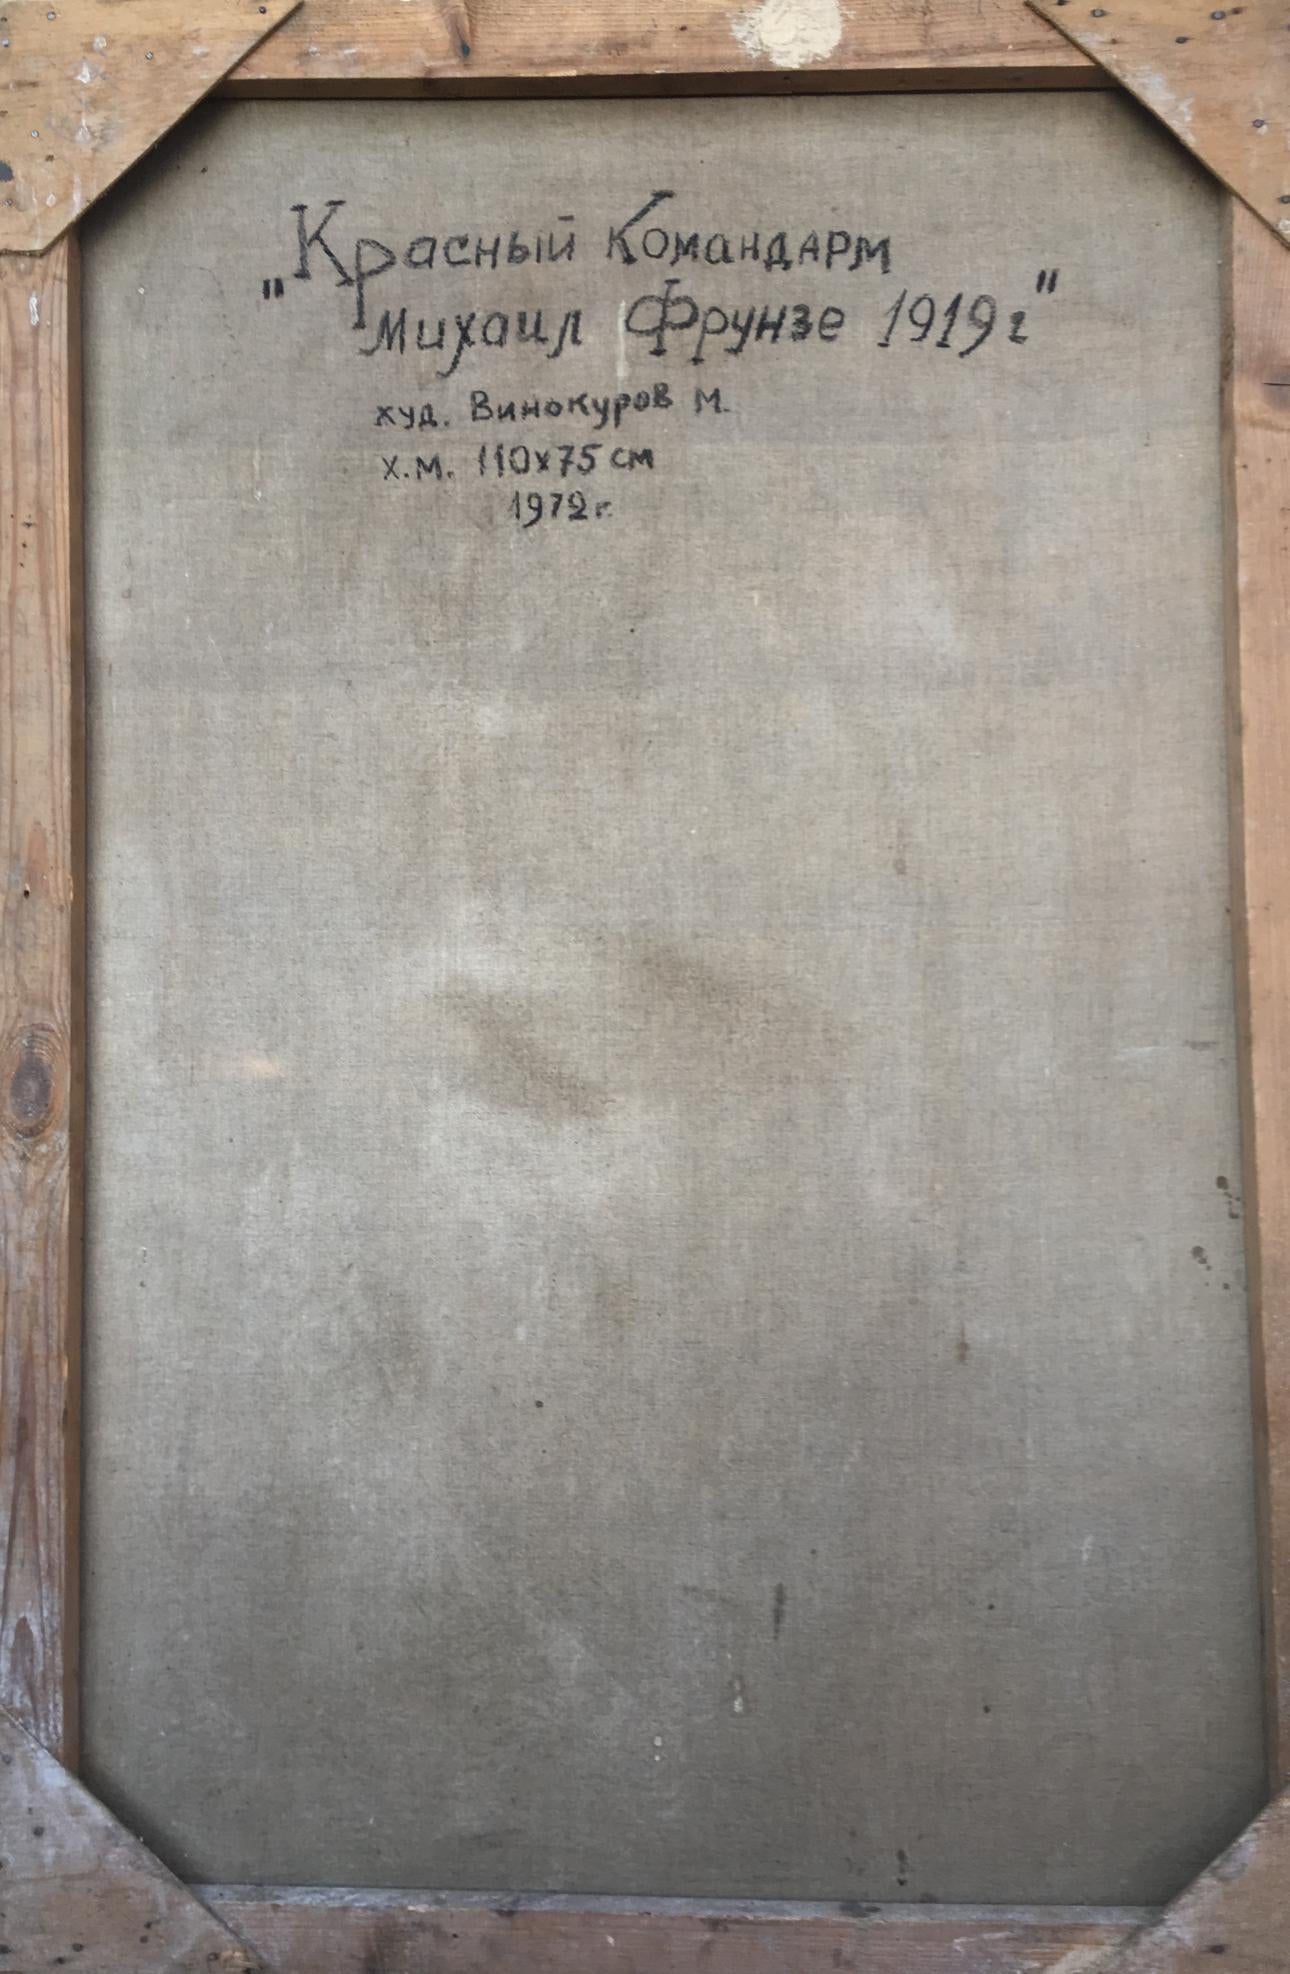 „Красный Командарм
Михаил Фрунзе 1919г"
худ. Винокуров М.
х.м. 110х75 см
1972 г.